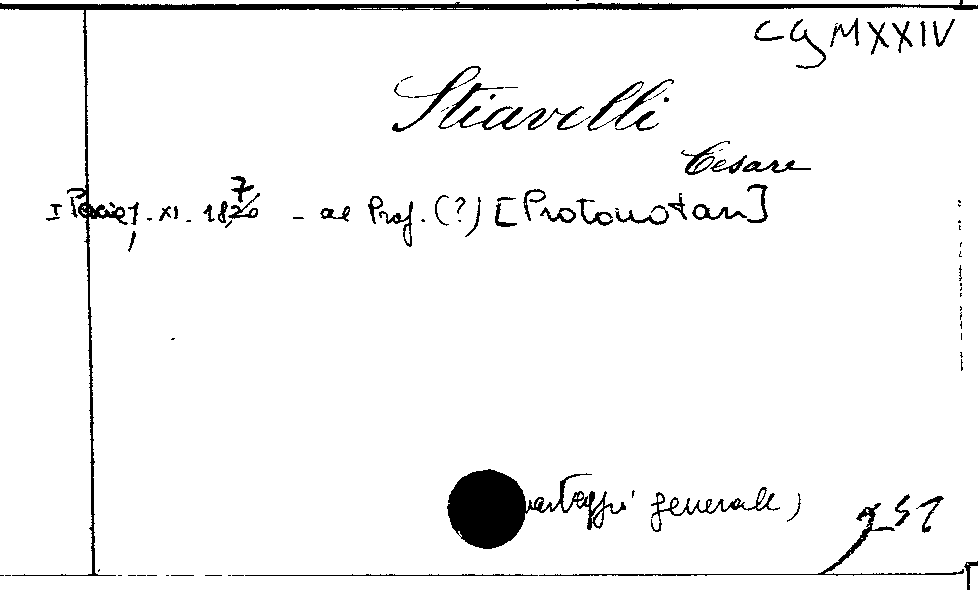 CG MXXIV
Stiavelli
Cesare
I - XI - 18 7 - al Prof. (?) [Protonotari]
carteggi generale)